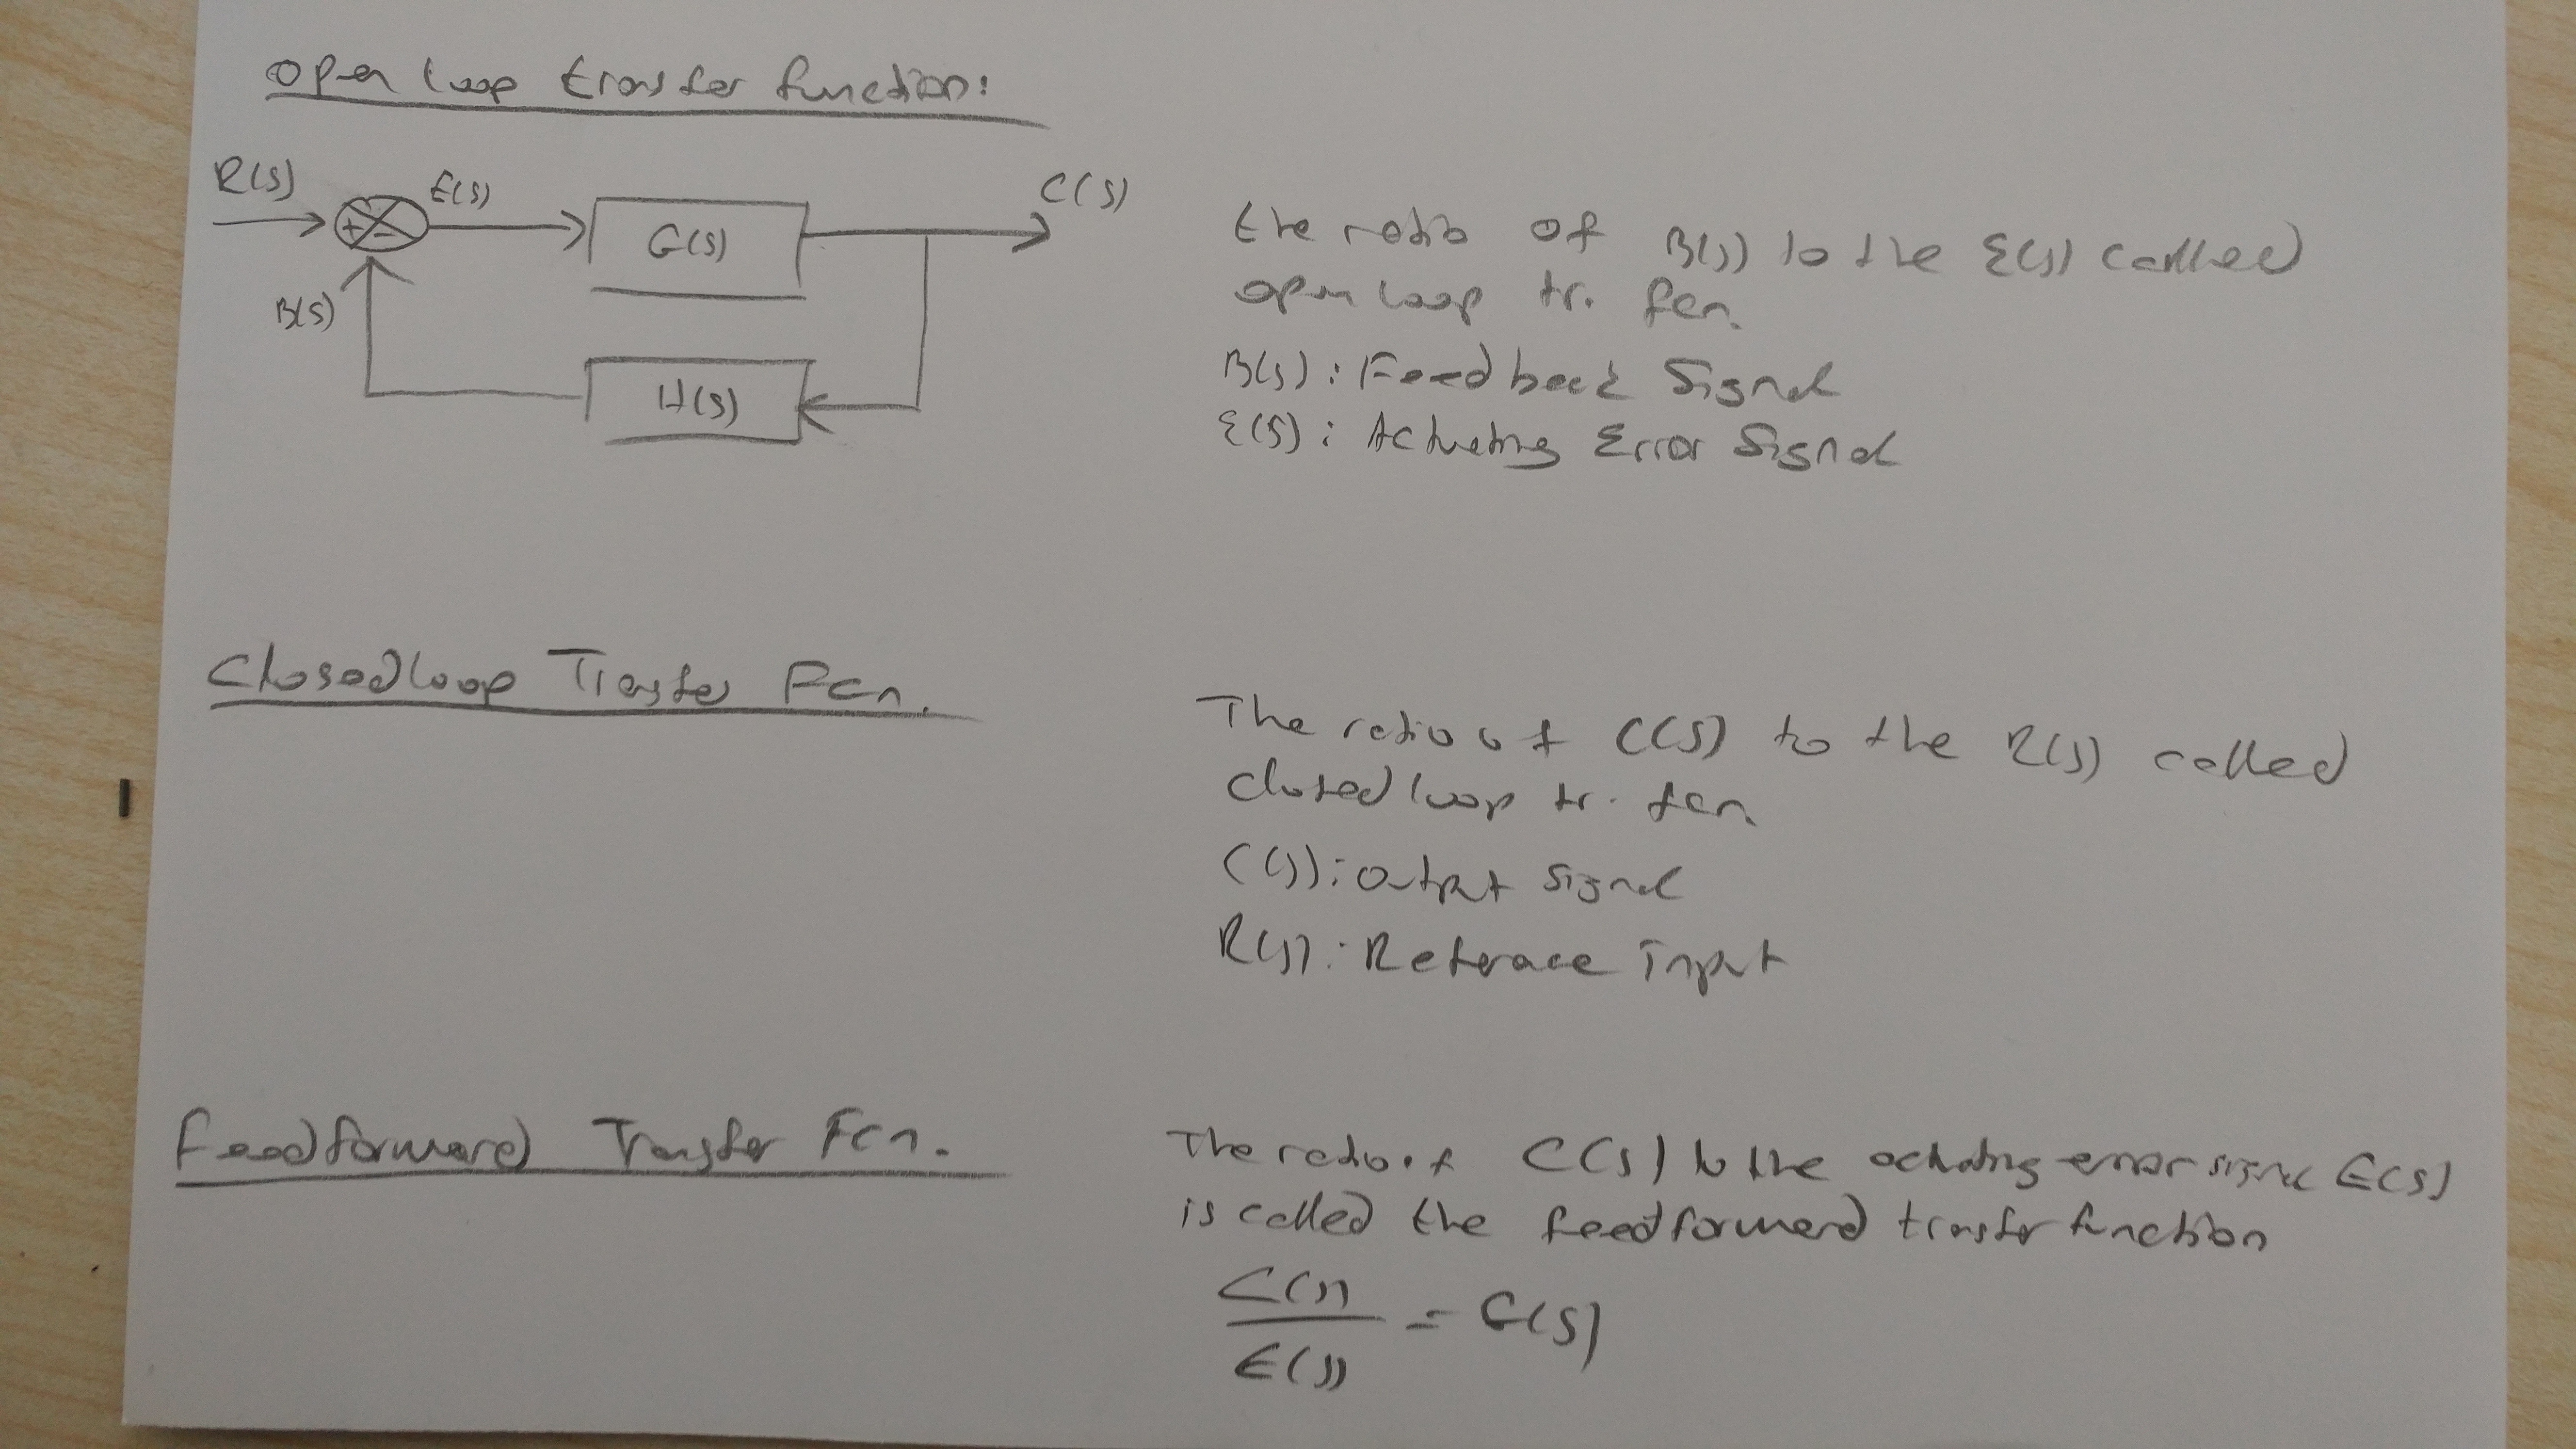 Open loop transfer function:
R(s)
E(s)
G(s)
C(s)
+
-
B(s)
H(s)
the ratio of B(s) to the E(s) called
open loop tr. fcn.
B(s): Feedback Signal
E(s): Actuating Error Signal
Closed loop Transfer Fcn.
The ratio of C(s) to the R(s) called
closed loop tr. fcn.
C(s): output signal
R(s): Reference input
Feedforward Transfer Fcn.
The ratio of C(s) to the actuating error signal E(s)
is called the feedforward transfer function
C(s)
= G(s)
E(s)